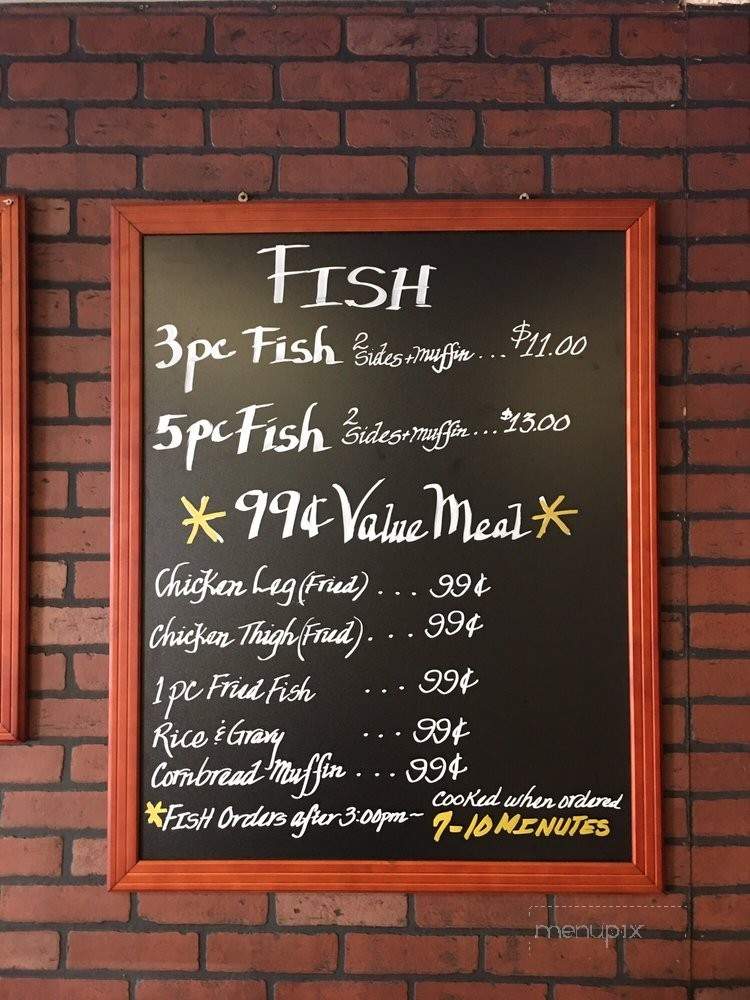 FISH
3pc Fish 2 Sides + muffin ... $11.00
5pc Fish 2 Sides + muffin ... $13.00
* 99¢ Value Meal *
Chicken Leg (Fried) ... 99¢
Chicken Thigh (Fried) ... 99¢
1pc Fried Fish ... 99¢
Rice & Gravy ... 99¢
Cornbread Muffin ... 99¢
*FISH Orders after 3:00pm~ cooked when ordered
7-10 MINUTES
menupix